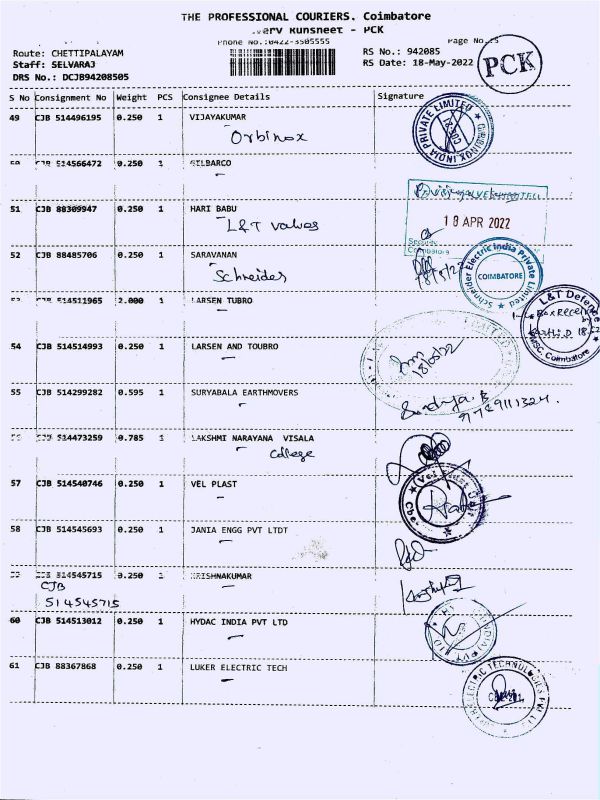 THE PROFESSIONAL COURIERS. Coimbatore
Runsheet - PCK
Phone No.:0422-3505555
Page No.:5
Route: CHETTIPALAYAM
RS No.: 942085
Staff: SELVARAJ
RS Date: 18-May-2022
PCK
DRS No.: DCJB94208505
S No Consignment No Weight PCS Consignee Details Signature
49 CJB 514496195 0.250 1 VIJAYAKUMAR
Orbinox
ORBINOX INDIA PRIVATE LIMITED
CJB 514566472 0.250 1 GILBARCO
51 CJB 88309947 0.250 1 HARI BABU
L&T valves
18 APR 2022
Security
Coimbatore
52 CJB 88485706 0.250 1 SARAVANAN
Schneider
Schneider Electric India Private Limited
COIMBATORE
53 CJB 514511965 2.000 1 LARSEN TUBRO
L&T Defence
Coimbatore
54 CJB 514514993 0.250 1 LARSEN AND TOUBRO
18/05/22
55 CJB 514299282 0.595 1 SURYABALA EARTHMOVERS
CJB 514473259 0.785 1 LAKSHMI NARAYANA VISALA
College
57 CJB 514540746 0.250 1 VEL PLAST
Cbe.
58 CJB 514545693 0.250 1 JANIA ENGG PVT LTDT
CJB 514545715 0.250 1 KRISHNAKUMAR
CJB
514545715
60 CJB 514513012 0.250 1 HYDAC INDIA PVT LTD
61 CJB 88367868 0.250 1 LUKER ELECTRIC TECH
ELECTRIC TECHNOLOGIES PVT LTD